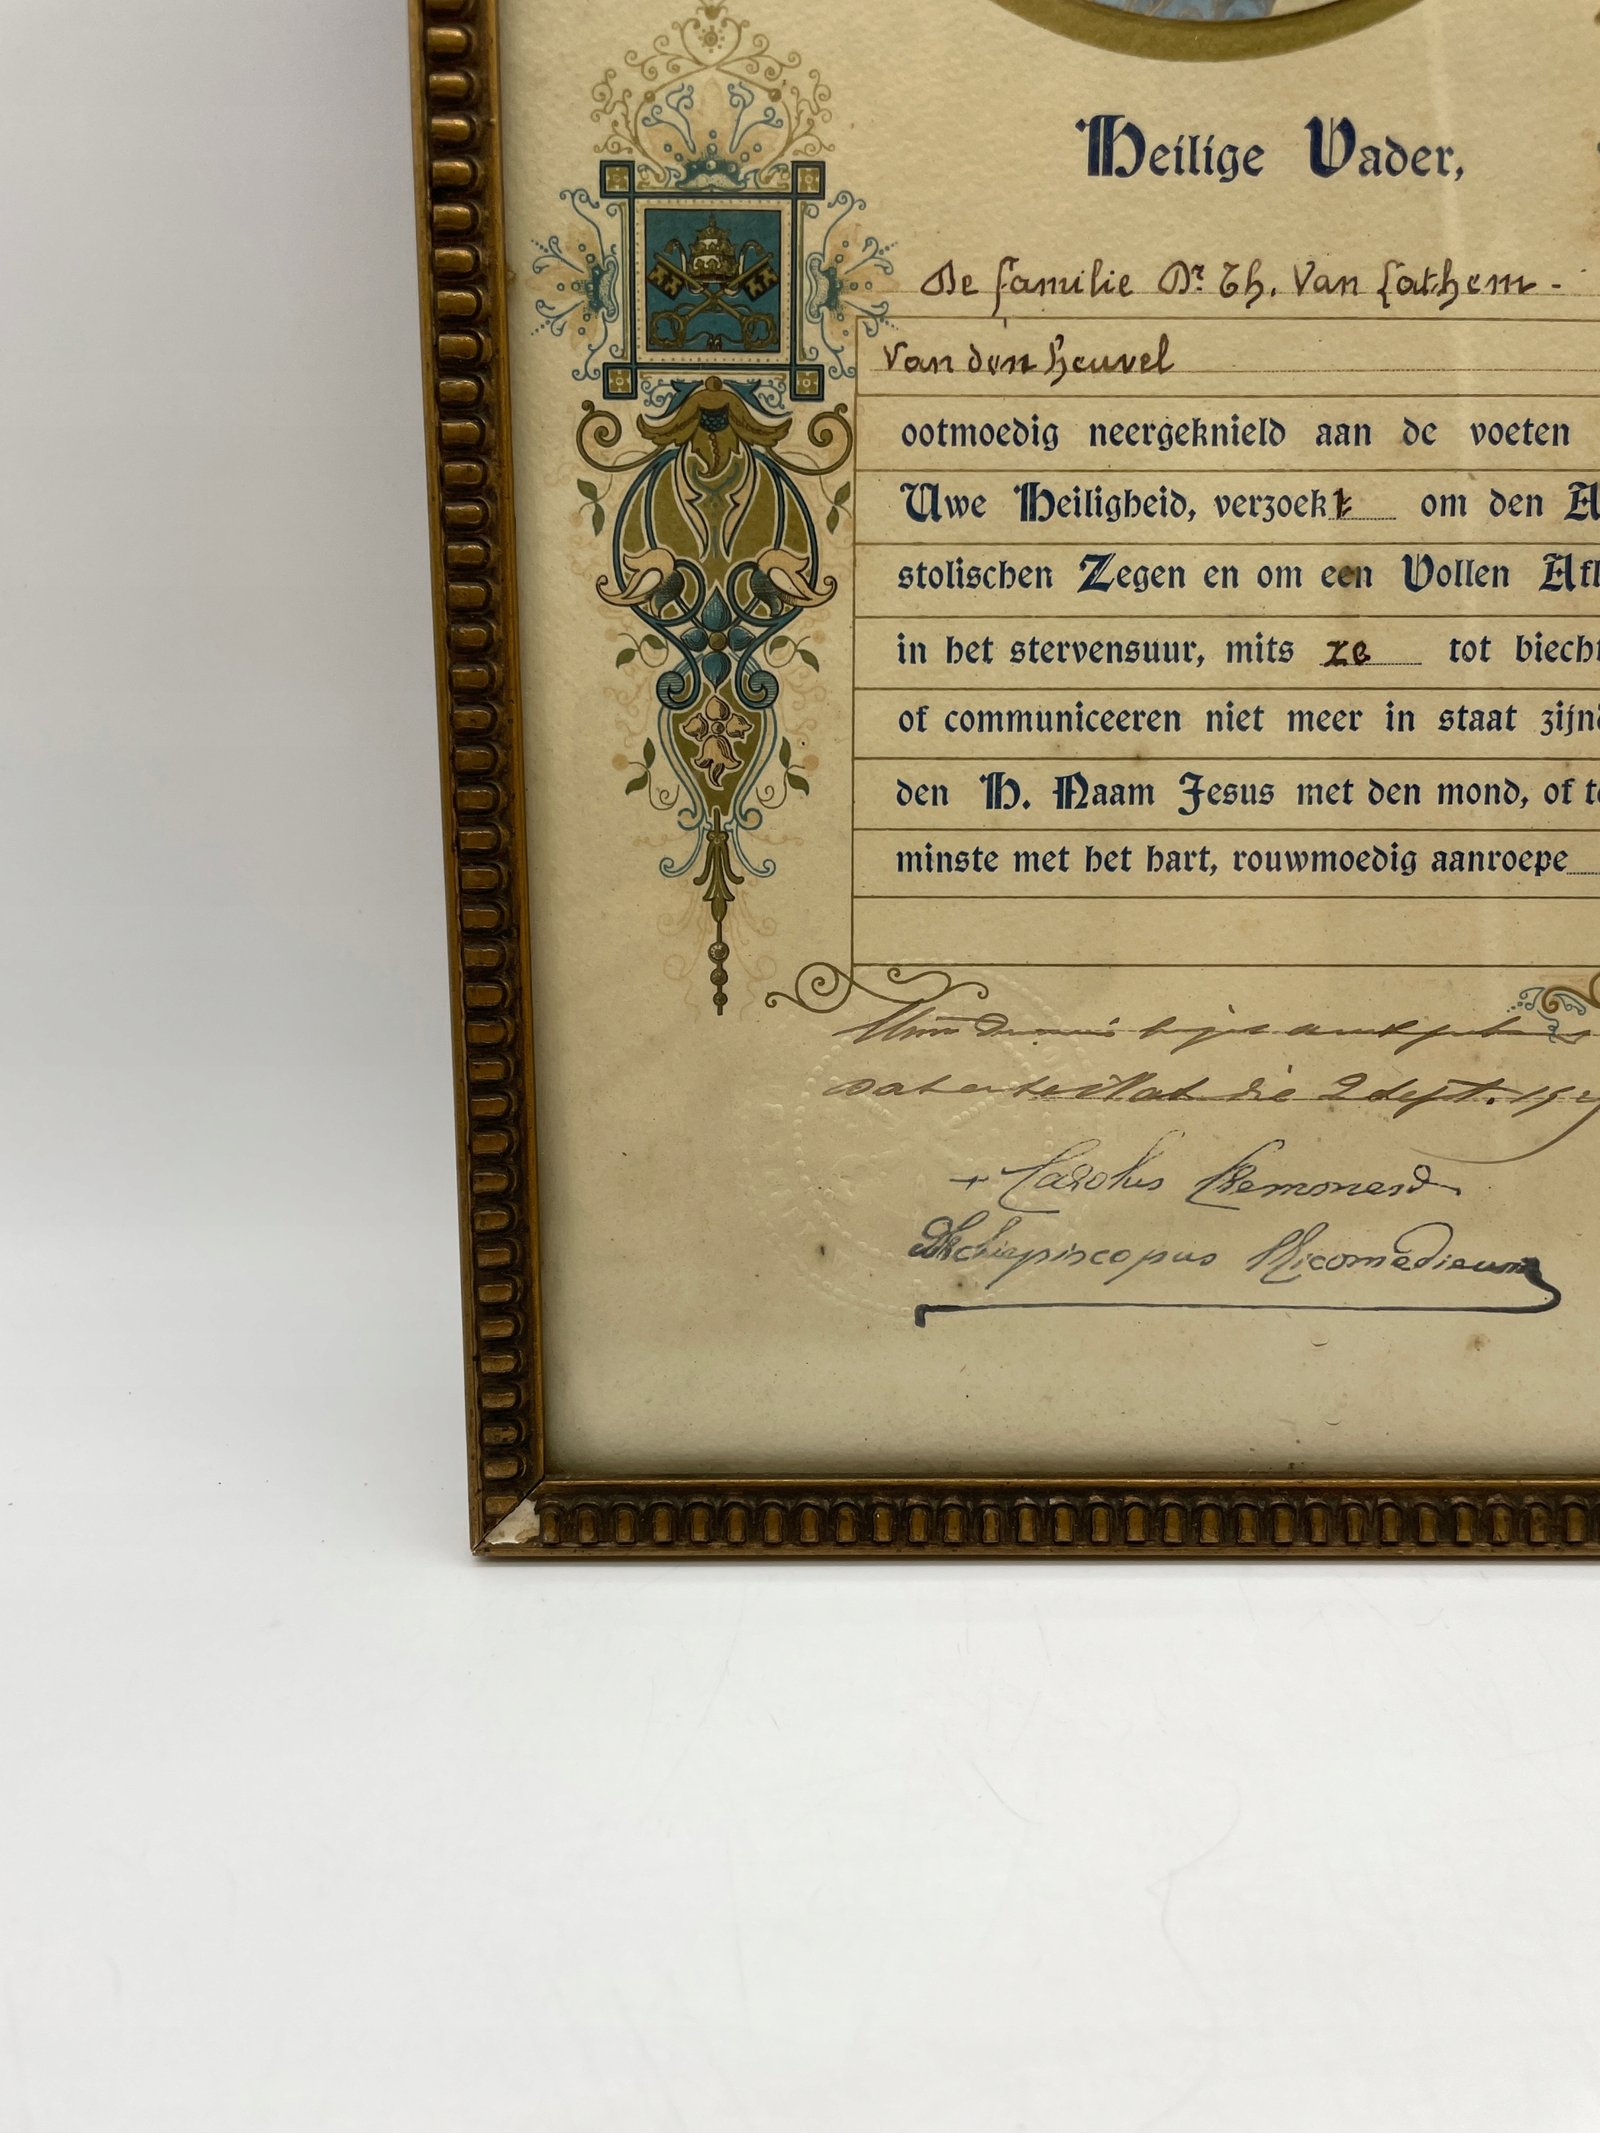 Heilige Vader,
De familie Dr. Th. Van Lathem -
Van den Heuvel
ootmoedig neergeknield aan de voeten
Uwe Heiligheid, verzoekt om den A
stolischen Zegen en om een Vollen Afl
in het stervensuur, mits ze tot biecht
of communiceeren niet meer in staat zijnd
den H. Naam Jesus met den mond, of te
minste met het hart, rouwmoedig aanroepe
die 2 Sept. 19
+ Carolus
Archiepiscopus Nicomediensis